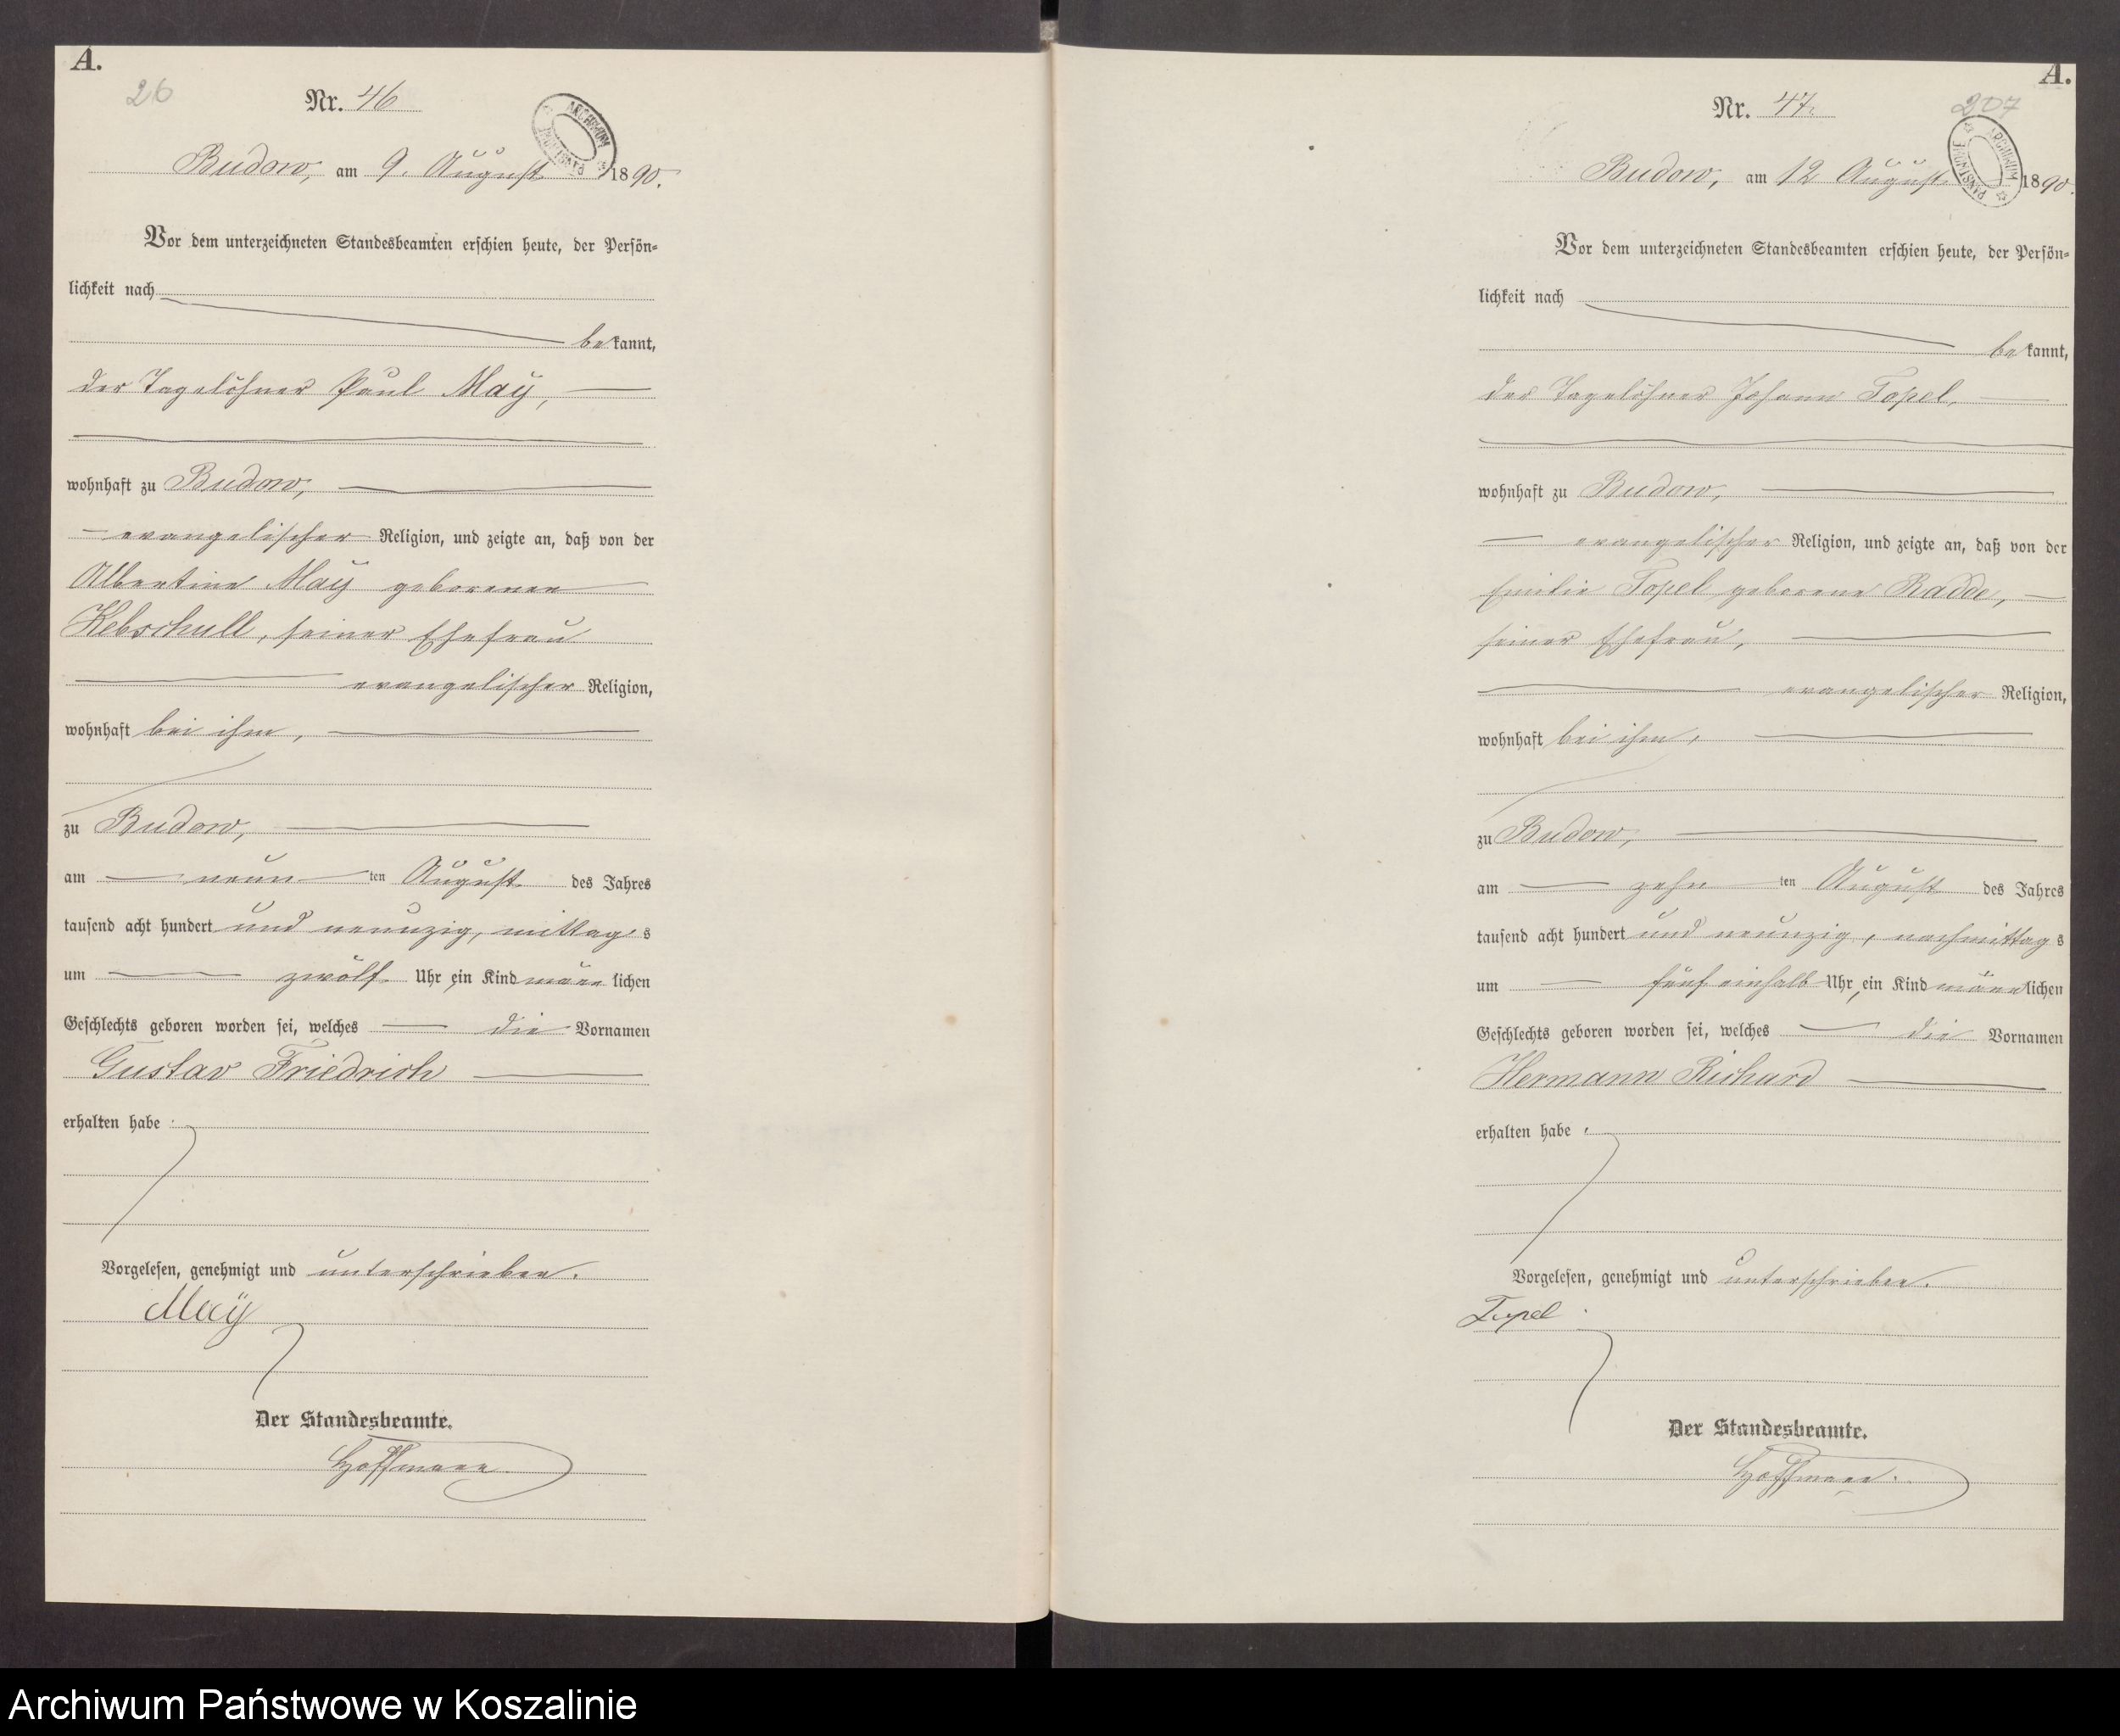 A.
26
Nr. 46
ARCHIWUM PAŃSTWOWE
Budow, am 9. August 1890.
Vor dem unterzeichneten Standesbeamten erschien heute, der Persön=
lichkeit nach
bekannt,
der Tagelöhner Paul Maÿ,
wohnhaft zu Budow,
evangelischer Religion, und zeigte an, daß von der
Albertine Maÿ geborenen
Kebschull, seiner Ehefrau
evangelischer Religion,
wohnhaft bei ihm,
zu Budow,
am neun ten August des Jahres
tausend acht hundert und neunzig, mittags
um zwölf Uhr ein Kind männlichen
Geschlechts geboren worden sei, welches die Vornamen
Gustav Friedrich
erhalten habe.
Vorgelesen, genehmigt und unterschrieben.
Maÿ
Der Standesbeamte.
Hoffmann.
A.
207
Nr. 47.
ARCHIWUM PAŃSTWOWE
Budow, am 12 August 1890.
Vor dem unterzeichneten Standesbeamten erschien heute, der Persön=
lichkeit nach
bekannt,
der Tagelöhner Johann Topel,
wohnhaft zu Budow,
evangelischer Religion, und zeigte an, daß von der
Emilie Topel geborene Radde,
seiner Ehefrau,
evangelischer Religion,
wohnhaft bei ihm,
zu Budow,
am zehn ten August des Jahres
tausend acht hundert und neunzig, nachmittags
um fünf einhalb Uhr, ein Kind männlichen
Geschlechts geboren worden sei, welches die Vornamen
Hermann Richard
erhalten habe.
Vorgelesen, genehmigt und unterschrieben.
Topel
Der Standesbeamte.
Hoffmann.
Archiwum Państwowe w Koszalinie